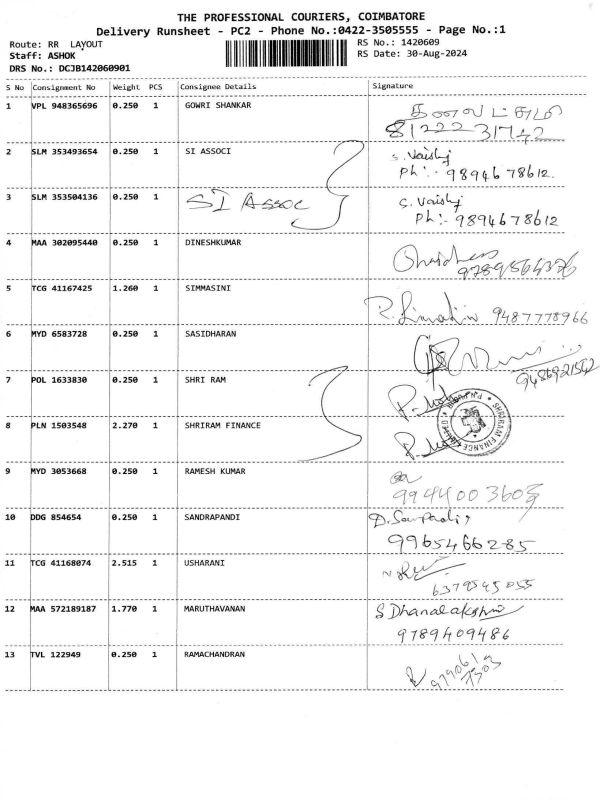 THE PROFESSIONAL COURIERS, COIMBATORE
Delivery Runsheet - PC2 - Phone No.:0422-3505555 - Page No.:1
Route: RR LAYOUT
RS No.: 1420609
Staff: ASHOK
RS Date: 30-Aug-2024
DRS No.: DCJB142060901
S No Consignment No Weight PCS Consignee Details Signature
1 VPL 948365696 0.250 1 GOWRI SHANKAR
8122231742
2 SLM 353493654 0.250 1 SI ASSOCI S. Vaishj
Ph:- 9894678612.
3 SLM 353504136 0.250 1 SI Assoc S. Vaishj
Ph:- 9894678612
4 MAA 302095440 0.250 1 DINESHKUMAR
5 TCG 41167425 1.260 1 SIMMASINI
9487778966
6 MYD 6583728 0.250 1 SASIDHARAN
7 POL 1633830 0.250 1 SHRI RAM
8 PLN 1503548 2.270 1 SHRIRAM FINANCE
SHRIRAM FINANCE
9 MYD 3053668 0.250 1 RAMESH KUMAR
9944003603
10 DDG 854654 0.250 1 SANDRAPANDI
9965466285
11 TCG 41168074 2.515 1 USHARANI
6379545055
12 MAA 572189187 1.770 1 MARUTHAVANAN S Dhanalakshmi
9789409486
13 TVL 122949 0.250 1 RAMACHANDRAN